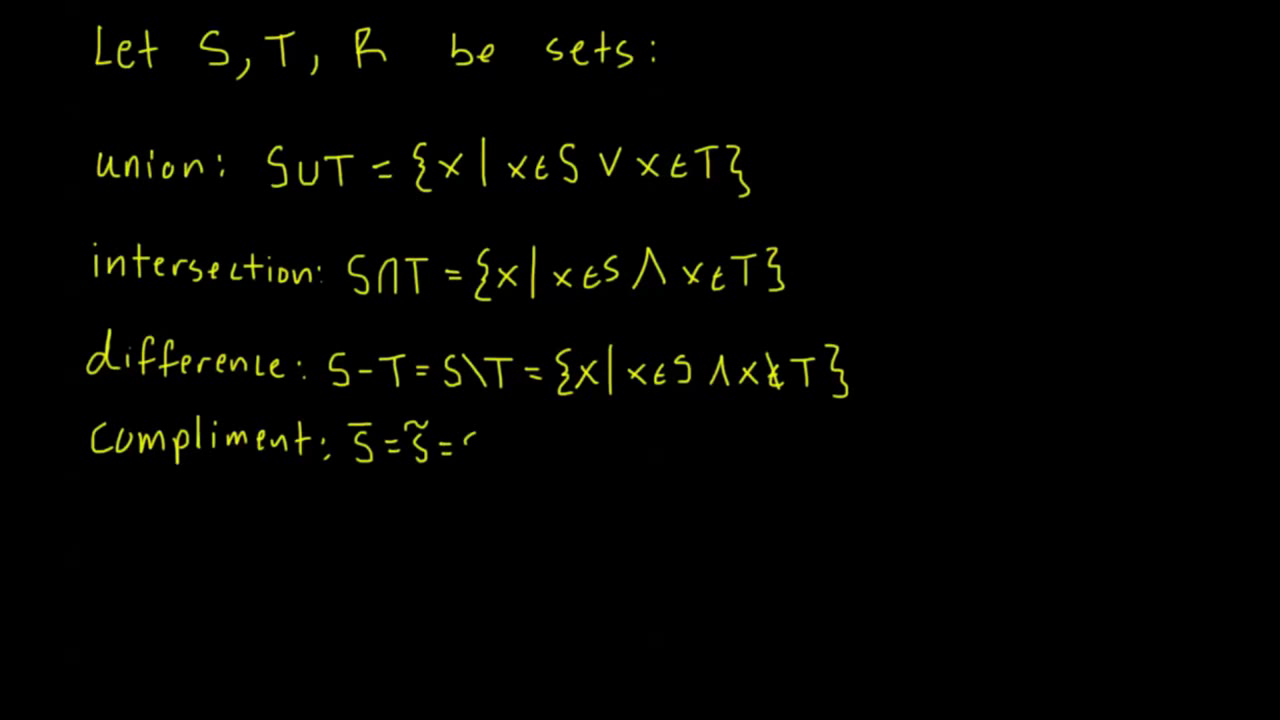 Let S, T, R be sets:
union: S∪T = {x | x∈S ∨ x∈T}
intersection: S∩T = {x | x∈S ∧ x∈T}
difference: S-T = S\T = {x | x∈S ∧ x∉T}
Compliment: S̅ = S̃ =